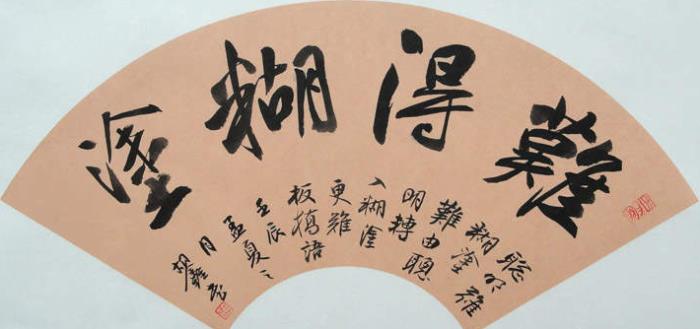 難得糊塗
聡明難
糊塗
難由聰
明轉
入糊塗
更難
板橋語
壬辰
孟夏之
月